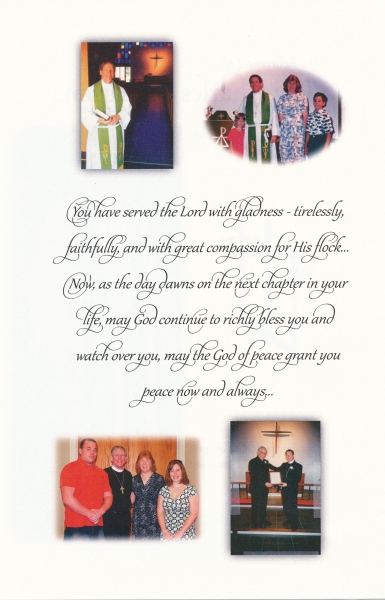 You have served the Lord with gladness - tirelessly,
faithfully, and with great compassion for His flock...
Now, as the day dawns on the next chapter in your
life, may God continue to richly bless you and
watch over you, may the God of peace grant you
peace now and always...